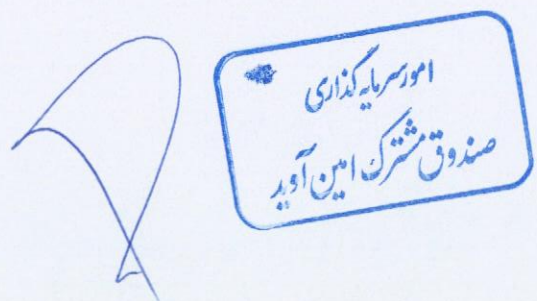 امور سرمایه گذاری
صندوق مشترک امین آوید